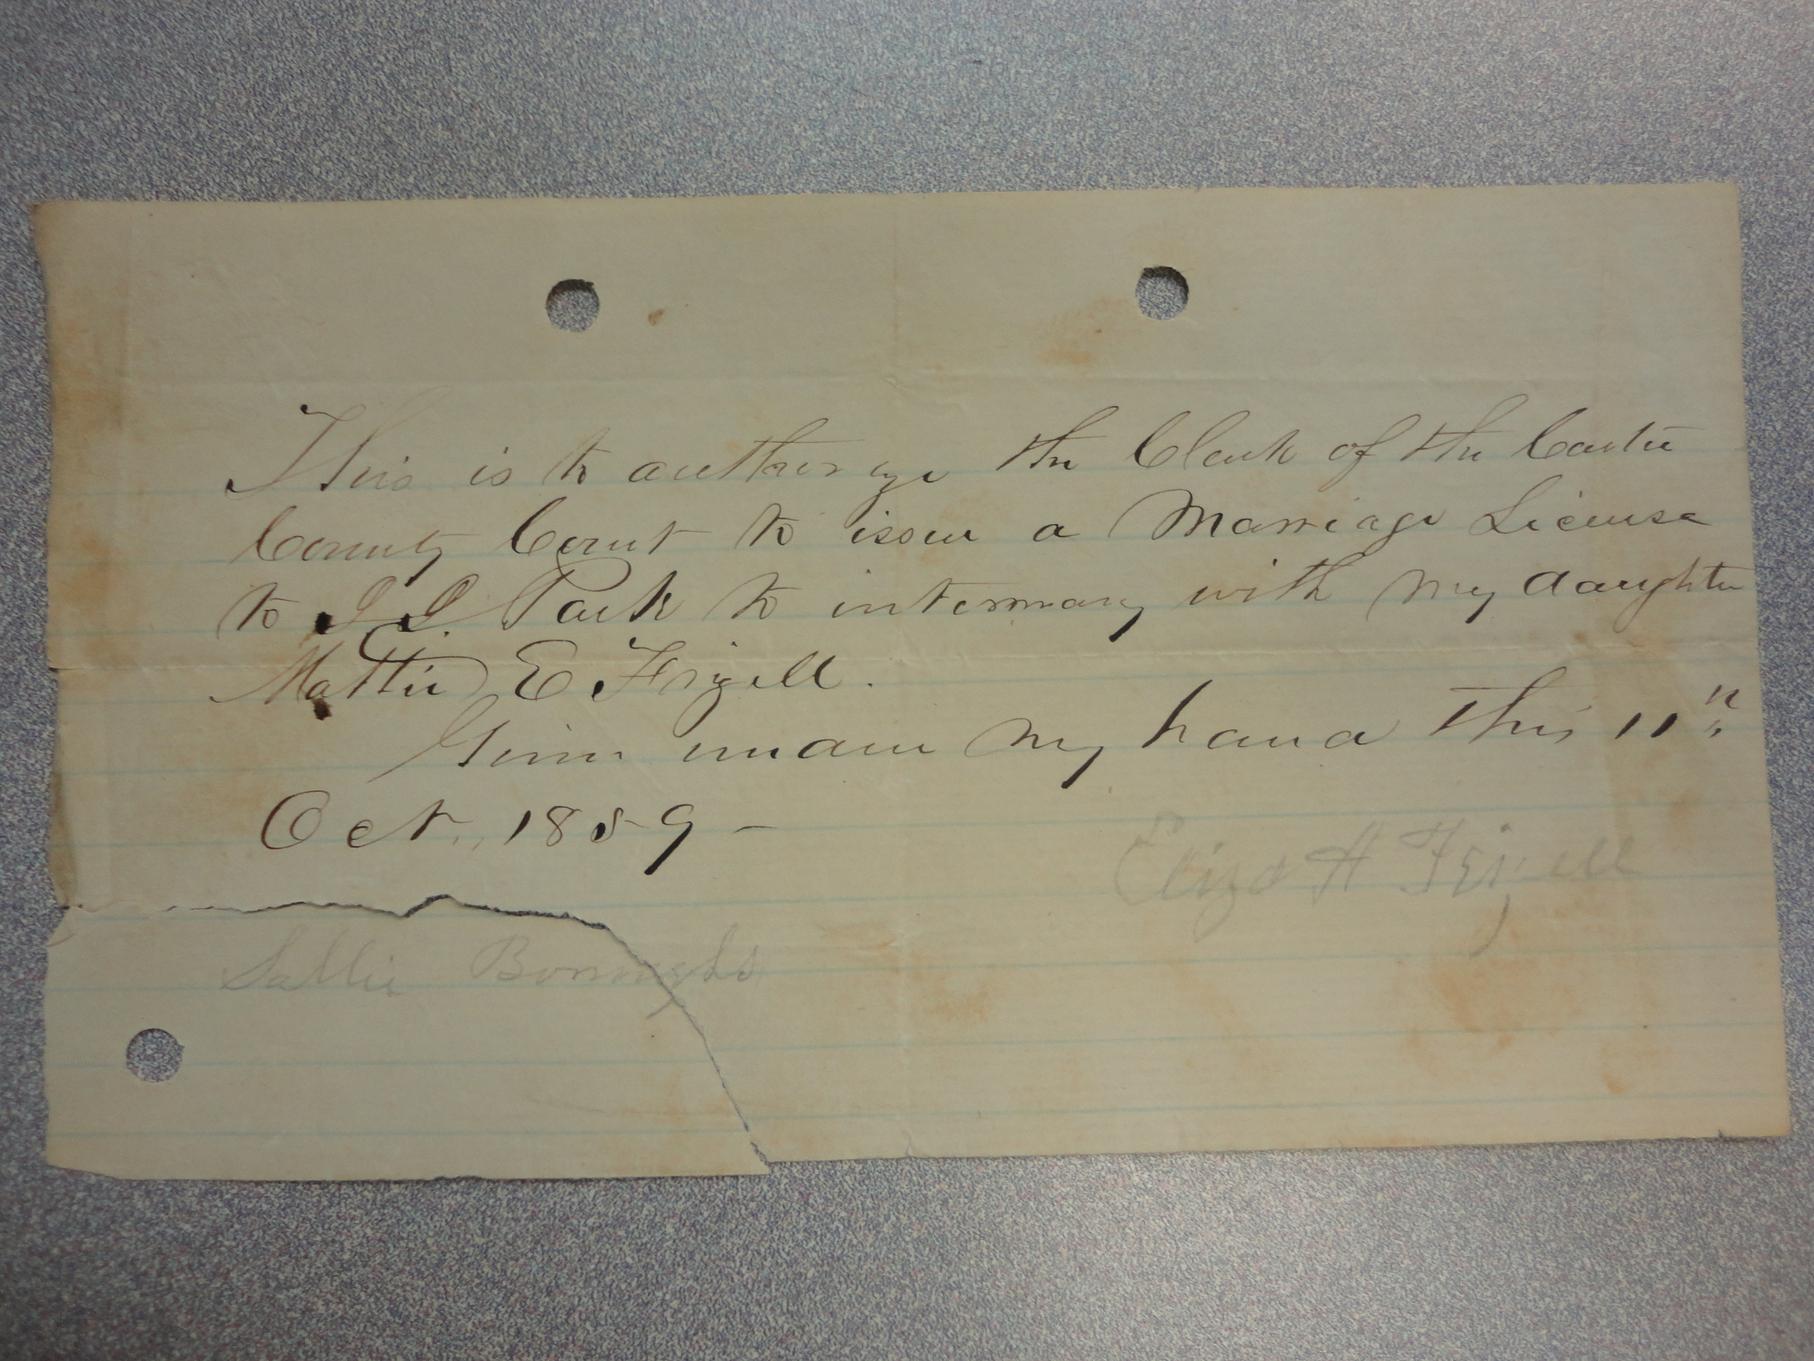 This is to authorize the Clerk of the Carter
County Court to issue a Marriage License
to J J Park to intermary with my daughter
Mattie E Frizell.
Given under my hand this 11"
Oct., 1889 -
Eliza H Frizell
Sallie Borroughs